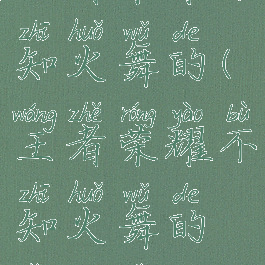 zhī huǒ wǔ de
知火舞的(
wáng zhě róng yào bù
王者荣耀不
zhī huǒ wǔ de
知火舞的